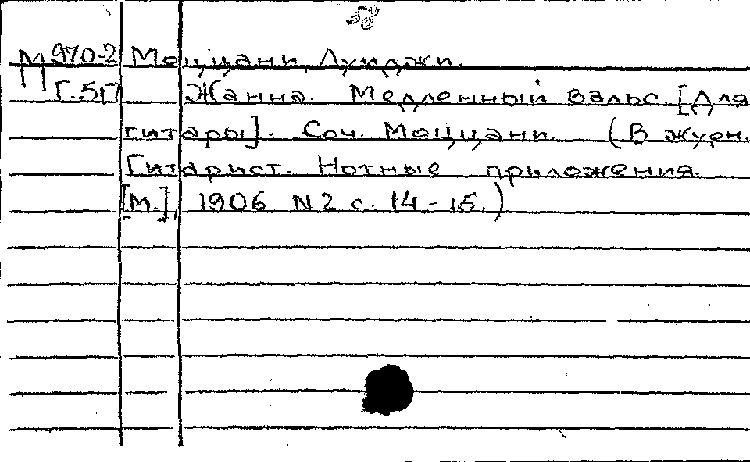 М 970-2 Меццани, Луиджи.
Г.5П Жанна. Медленный вальс. [Для
гитары]. Соч. Меццани. (В журн.
Гитарист. Нотные приложения.
[М.], 1906 N2 с. 14-15.)